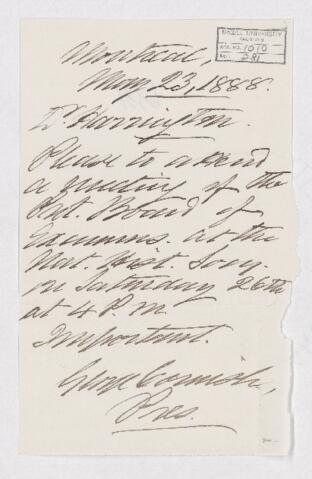 McGILL UNIVERSITY
ACC. NO. 1070
Montreal,
May 23, 1888.
Dr. Harrington.
Please to attend
a meeting of the
Prot. Board of
Examiners. at the
Nat. Hist. Socy.
on Saturday 26th
at 4 P.M.
Important.
George Cornish,
Pres.